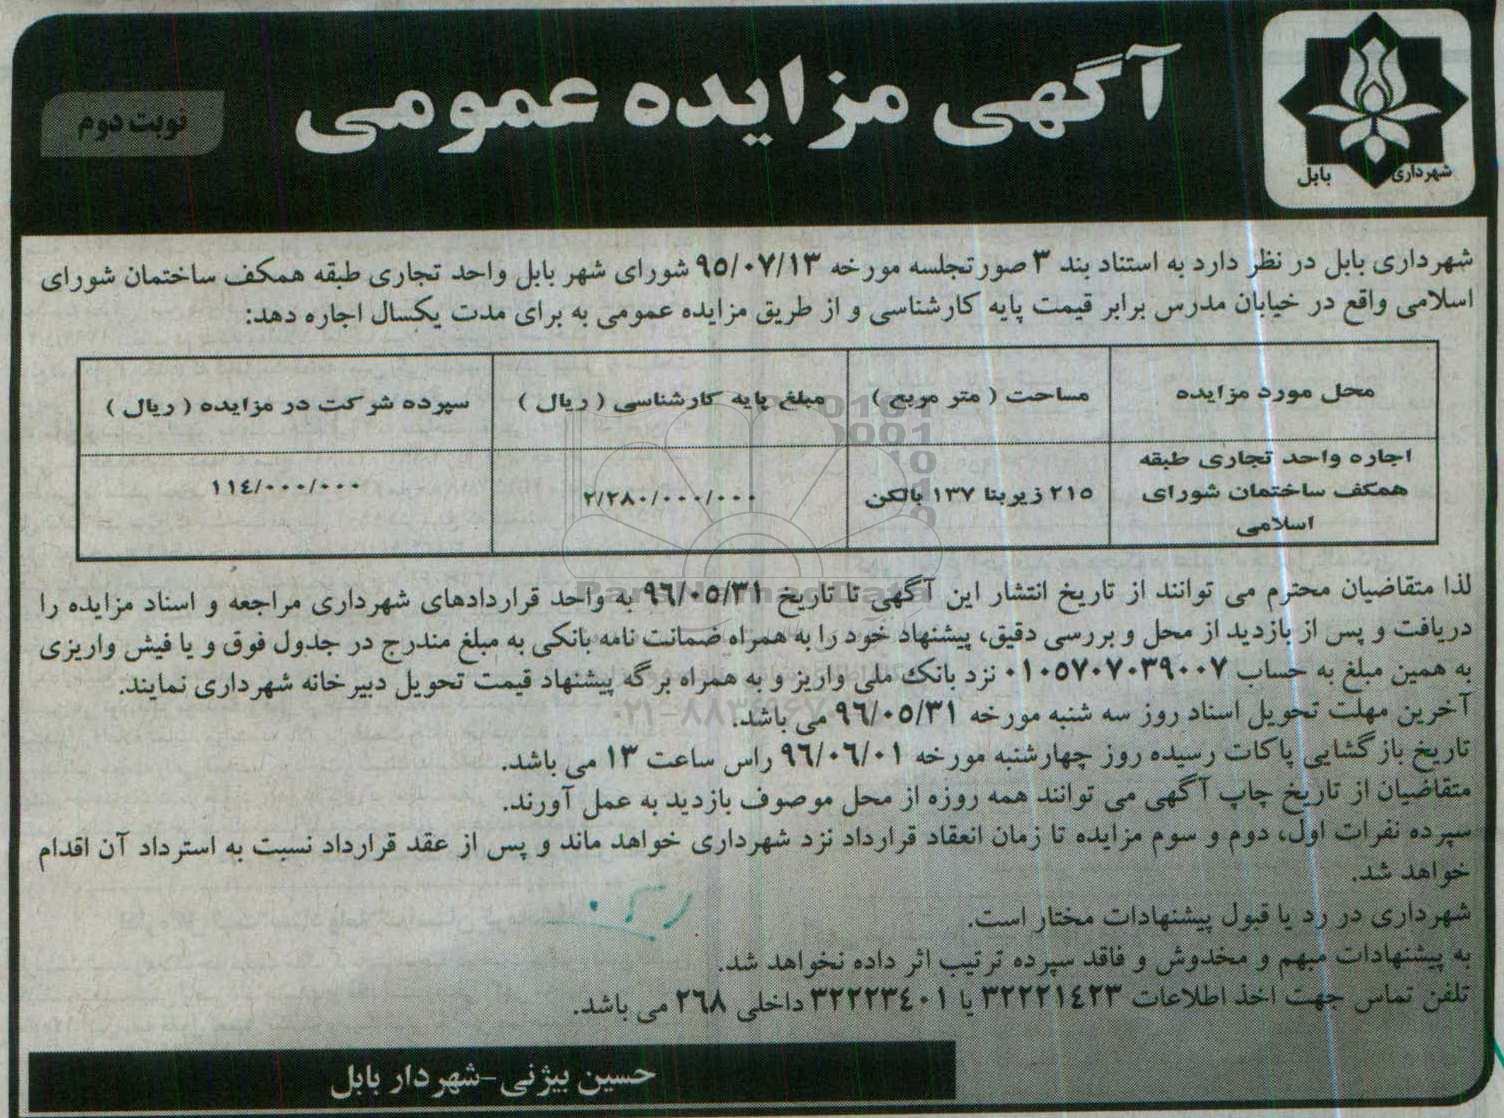 شهرداری بابل
آگهی مزایده عمومی
نوبت دوم
شهرداری بابل در نظر دارد به استناد بند ۳ صورتجلسه مورخه ۹۵/۰۷/۱۳ شورای شهر بابل واحد تجاری طبقه همکف ساختمان شورای
اسلامی واقع در خیابان مدرس برابر قیمت پایه کارشناسی و از طریق مزایده عمومی به برای مدت یکسال اجاره دهد:
محل مورد مزایده	مساحت ( متر مربع )	مبلغ پایه کارشناسی ( ریال )	سپرده شرکت در مزایده ( ریال )
اجاره واحد تجاری طبقه
همکف ساختمان شورای
اسلامی
۲۱۵ زیربنا ۱۳۷ بالکن	۲/۲۸۰/۰۰۰/۰۰۰	۱۱٤/۰۰۰/۰۰۰
لذا متقاضیان محترم می توانند از تاریخ انتشار این آگهی تا تاریخ ۹٦/۰۵/۳۱ به واحد قراردادهای شهرداری مراجعه و اسناد مزایده را
دریافت و پس از بازدید از محل و بررسی دقیق، پیشنهاد خود را به همراه ضمانت نامه بانکی به مبلغ مندرج در جدول فوق و یا فیش واریزی
به همین مبلغ به حساب ۰۱۰۵۷۰۷۰۳۹۰۰۷ نزد بانک ملی واریز و به همراه برگه پیشنهاد قیمت تحویل دبیرخانه شهرداری نمایند.
آخرین مهلت تحویل اسناد روز سه شنبه مورخه ۹٦/۰۵/۳۱ می باشد.
تاریخ بازگشایی پاکات رسیده روز چهارشنبه مورخه ۹٦/۰٦/۰۱ راس ساعت ۱۳ می باشد.
متقاضیان از تاریخ چاپ آگهی می توانند همه روزه از محل موصوف بازدید به عمل آورند.
سپرده نفرات اول، دوم و سوم مزایده تا زمان انعقاد قرارداد نزد شهرداری خواهد ماند و پس از عقد قرارداد نسبت به استرداد آن اقدام
خواهد شد.
شهرداری در رد یا قبول پیشنهادات مختار است.
به پیشنهادات مبهم و مخدوش و فاقد سپرده ترتیب اثر داده نخواهد شد.
تلفن تماس جهت اخذ اطلاعات ۳۲۲۲۱٤۲۳ یا ۳۲۲۲۳٤۰۱ داخلی ۲٦۸ می باشد.
حسین بیژنی-شهردار بابل